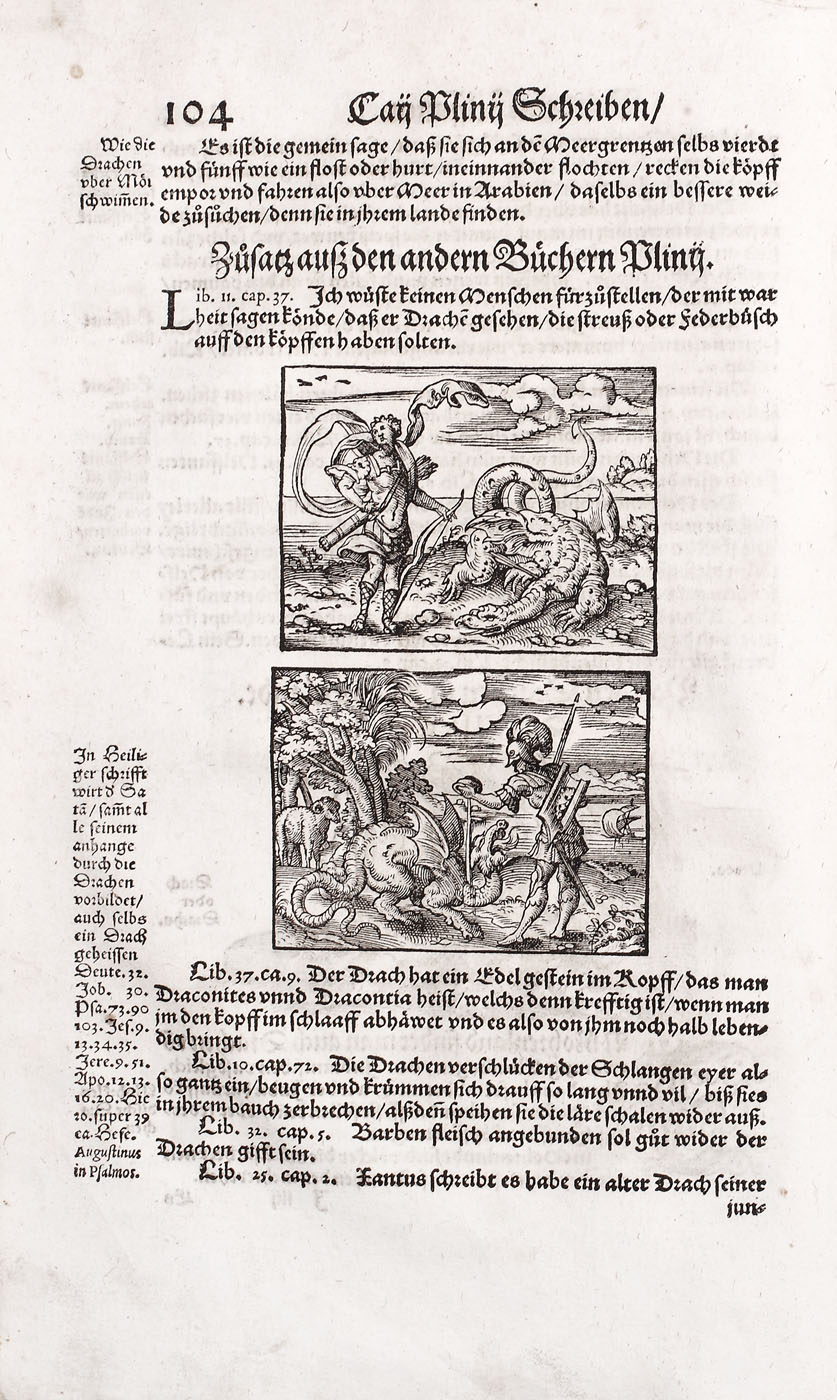 104
Caij Plinij Schreiben/
Wie die
Drachen
vber Möꝛ
schwim̃en.
Es ist die gemein sage/daß sie sich an dē Meergrentzen selbs vierdt
vnd fünff wie ein flost oder hurt/ineinnander flochten/recken die köpff
empor vnd fahren also vber Meer in Arabien/daselbs ein bessere wei-
de zůsůchen/denn sie in jhrem lande finden.
Zůsatz auß den andern Büchern Plinij.
Lib. 11. cap. 37. Ich wüste keinen Menschen fürzůstellen/der mit war
heit sagen könde/daß er Drachē gesehen/die streuß oder Federbüsch
auff den köpffen haben solten.
In Heili-
ger schrifft
wirt d Sa
tā/sam̃t al
le seinem
anhange
durch die
Drachen
vorbildet/
auch selbs
ein Drach
geheissen
Deute. 32.
Job. 30.
Psa. 73. 90
103. Jes. 9.
13. 34. 35.
Jere. 9. 51.
Apo. 12. 13.
16. 20. Hie
ro. super 39
ca. Hese.
Augustinus
in Psalmos.
Lib. 37. ca. 9. Der Drach hat ein Edel gestein im Kopff/das man
Draconites vnnd Dracontia heist/welchs denn krefftig ist/wenn man
jm den kopff im schlaaff abhäwet vnd es also von jhm noch halb leben-
dig bringt.
Lib. 10. cap. 72. Die Drachen verschlücken der Schlangen eyer al-
so gantz ein/beugen vnd krümmen sich drauff so lang vnnd vil/biß sies
in jhrem bauch zerbrechen/alßdeñ speihen sie die läre schalen wider auß.
Lib. 32. cap. 5. Barben fleisch angebunden sol gůt wider der
Drachen gifft sein.
Lib. 25. cap. 2. Xantus schreibt es habe ein alter Drach seiner
jun-